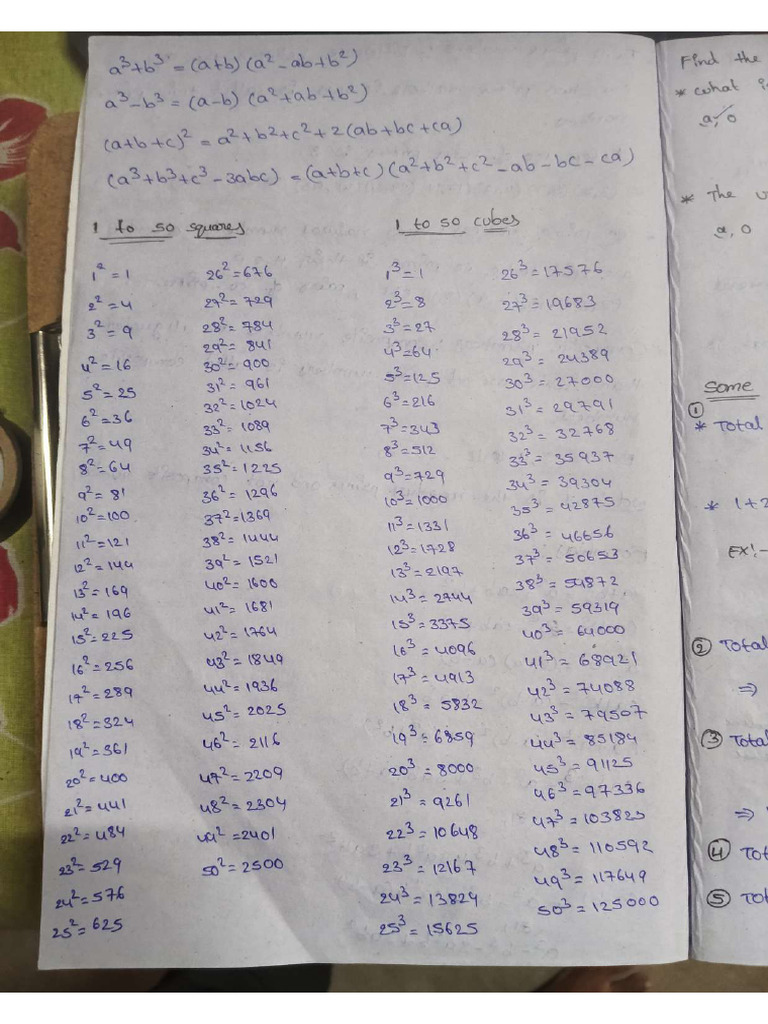 a³+b³ = (a+b) (a²-ab+b²)
a³-b³ = (a-b) (a²+ab+b²)
(a+b+c)² = a²+b²+c²+2(ab+bc+ca)
(a³+b³+c³-3abc) = (a+b+c) (a²+b²+c²-ab-bc-ca)
1 to 50 squares
1² = 1
2² = 4
3² = 9
4² = 16
5² = 25
6² = 36
7² = 49
8² = 64
9² = 81
10² = 100
11² = 121
12² = 144
13² = 169
14² = 196
15² = 225
16² = 256
17² = 289
18² = 324
19² = 361
20² = 400
21² = 441
22² = 484
23² = 529
24² = 576
25² = 625
26² = 676
27² = 729
28² = 784
29² = 841
30² = 900
31² = 961
32² = 1024
33² = 1089
34² = 1156
35² = 1225
36² = 1296
37² = 1369
38² = 1444
39² = 1521
40² = 1600
41² = 1681
42² = 1764
43² = 1849
44² = 1936
45² = 2025
46² = 2116
47² = 2209
48² = 2304
49² = 2401
50² = 2500
1 to 50 cubes
1³ = 1
2³ = 8
3³ = 27
4³ = 64
5³ = 125
6³ = 216
7³ = 343
8³ = 512
9³ = 729
10³ = 1000
11³ = 1331
12³ = 1728
13³ = 2197
14³ = 2744
15³ = 3375
16³ = 4096
17³ = 4913
18³ = 5832
19³ = 6859
20³ = 8000
21³ = 9261
22³ = 10648
23³ = 12167
24³ = 13824
25³ = 15625
26³ = 17576
27³ = 19683
28³ = 21952
29³ = 24389
30³ = 27000
31³ = 29791
32³ = 32768
33³ = 35937
34³ = 39304
35³ = 42875
36³ = 46656
37³ = 50653
38³ = 54872
39³ = 59319
40³ = 64000
41³ = 68921
42³ = 74088
43³ = 79507
44³ = 85184
45³ = 91125
46³ = 97336
47³ = 103823
48³ = 110592
49³ = 117649
50³ = 125000
Find the
* what
a, 0
* The
a, 0
Some
①
* Total
* 1+2
Ex:-
② Total
⇒
③ Total
⇒
④ Tot
⑤ Tot